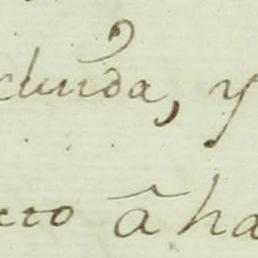 cluida, y
cto â ha